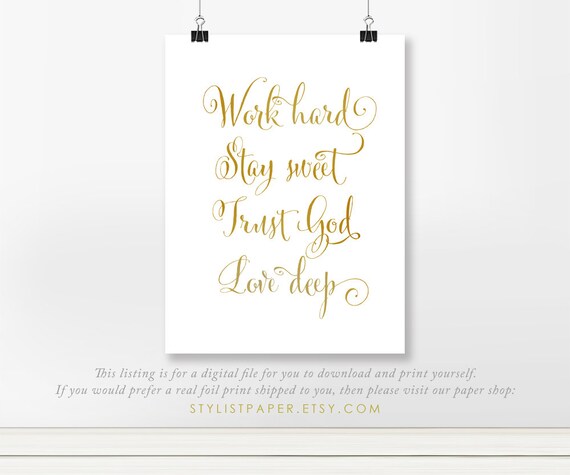 Work hard
Stay sweet
Trust God
Love deep
This listing is for a digital file for you to download and print yourself.
If you would prefer a real foil print shipped to you, then please visit our paper shop:
STYLISTPAPER.ETSY.COM